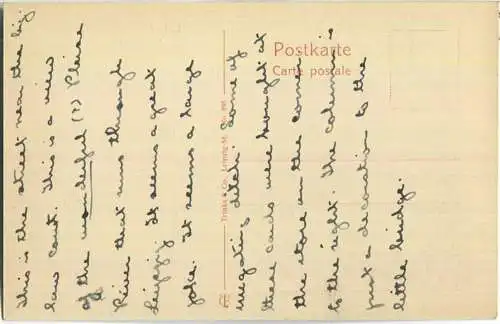 This is the street near the big
law court. This is a view
of the wonderful (?) Pleisse
River that runs through
Leipzig. It seems a great
joke. It seems a large
irrigating ditch. Some of
these cards were bought at
the store on the corner
to the right. The column is
just a decoration to the
little bridge.
Postkarte
Carte postale
Trinks & Co., Leipzig-M.